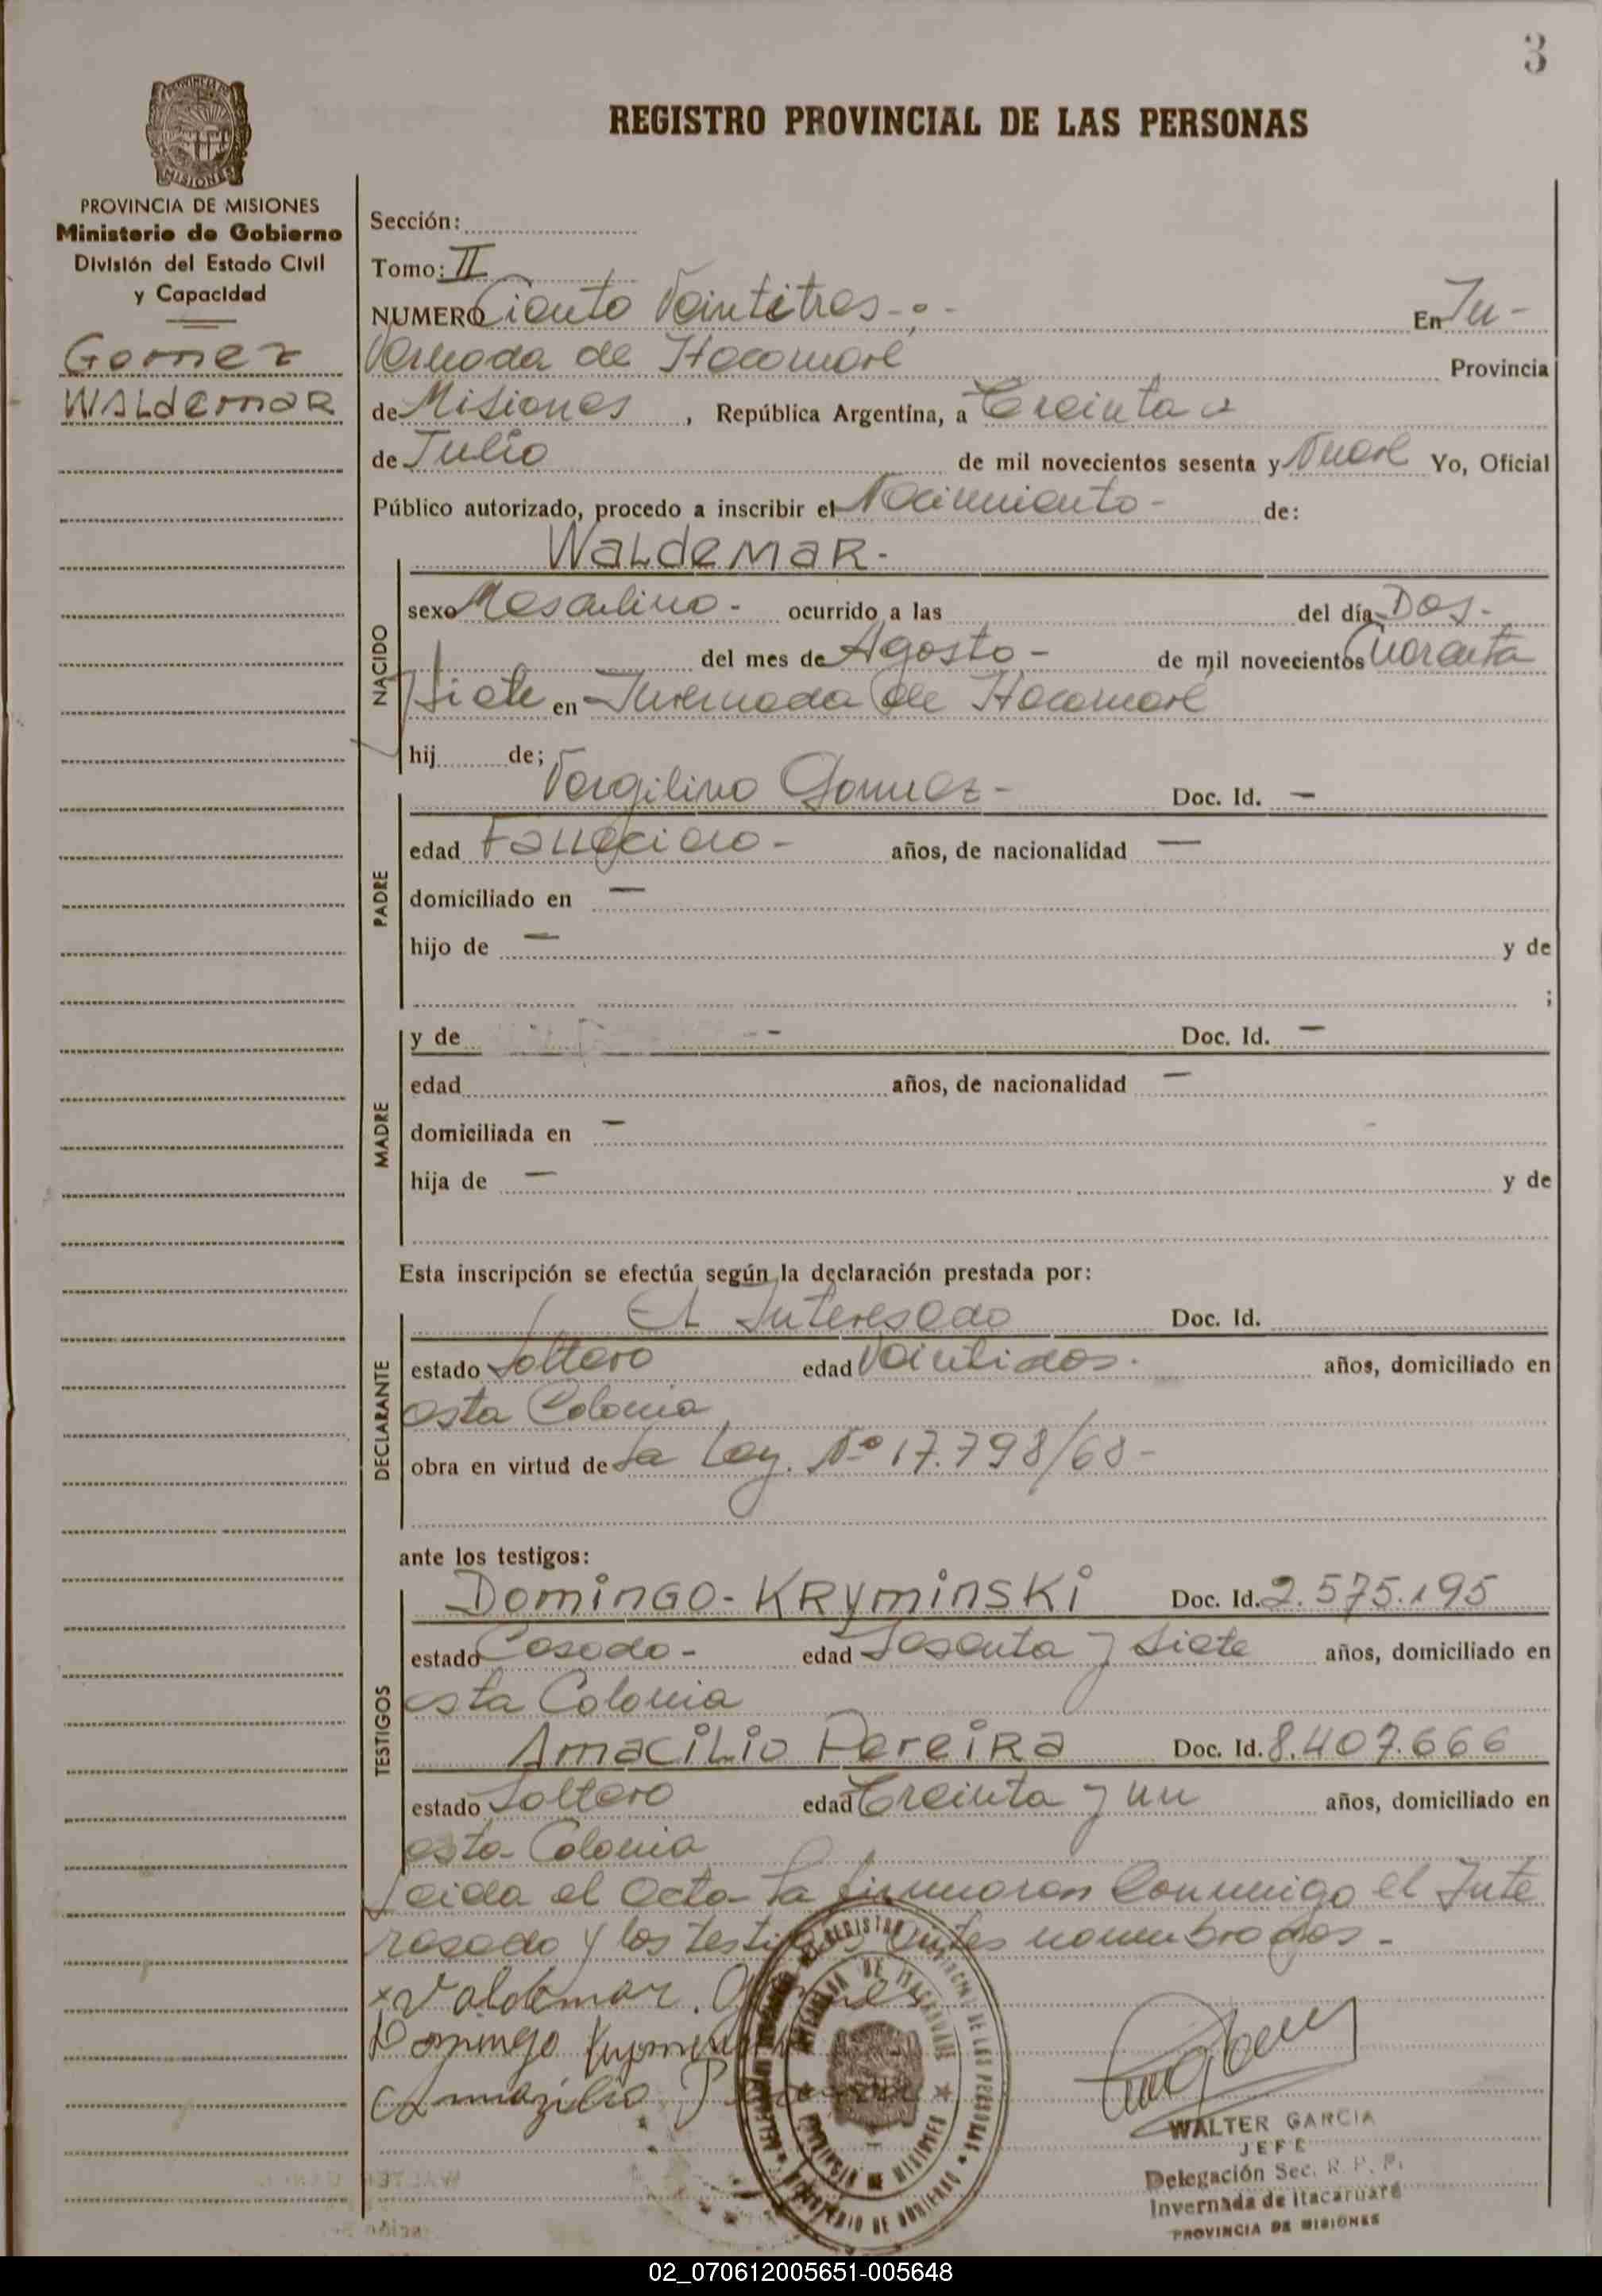 3
REGISTRO PROVINCIAL DE LAS PERSONAS
PROVINCIA DE MISIONES
Ministerio de Gobierno
División del Estado Civil
y Capacidad
Gomez
WALdemaR
Sección:
Tomo: II
NUMERO Ciento Veintitres - . - En In -
vernada de Itacaruaré Provincia
de Misiones, República Argentina, a Treinta
de Julio de mil novecientos sesenta y Nueve Yo, Oficial
Público autorizado, procedo a inscribir el Nacimiento - de:
WaLdeMaR -
NACIDO
sexo Masculino - ocurrido a las del día Dos -
del mes de Agosto - de mil novecientos Cuarenta
y Siete en Invernada de Itacaruaré
hij de;
PADRE
Vergilino Gomez - Doc. Id. —
edad Fallecido - años, de nacionalidad —
domiciliado en —
hijo de — y de
;
MADRE
y de - Doc. Id. —
edad años, de nacionalidad —
domiciliada en —
hija de — y de
Esta inscripción se efectúa según la declaración prestada por:
DECLARANTE
El Interesado Doc. Id.
estado Soltero edad Veintidos - años, domiciliado en
esta Colonia
obra en virtud de La Ley. Nº 17.798/68 -
ante los testigos:
TESTIGOS
DominGO - KRyminSKi Doc. Id. 2.575.195
estado Casado - edad Sesenta y Siete años, domiciliado en
esta Colonia
AmaciLio Pereira Doc. Id. 8.407.666
estado Soltero edad Treinta y un años, domiciliado en
esta Colonia
Leida el Acta La firmaron Conmigo el Inte
resado y los testigos antes nombrados -
x Valdemar.
Domingo
Amazilio
MINISTERIO DE GOBIERNO
INVERNADA DE ITACARUARE
PROVINCIA DE MISIONES
WALTER GARCIA
JEFE
Delegación Sec. R. P. P.
Invernada de Itacaruaré
PROVINCIA DE MISIONES
02_070612005651-005648